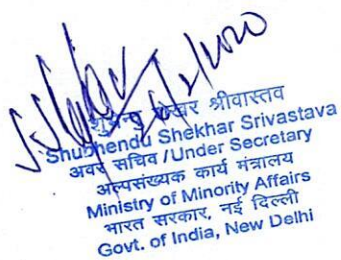 26/2/2020
शेखर श्रीवास्तव
Shubhendu Shekhar Srivastava
अवर सचिव /Under Secretary
अल्पसंख्यक कार्य मंत्रालय
Ministry of Minority Affairs
भारत सरकार, नई दिल्ली
Govt. of India, New Delhi